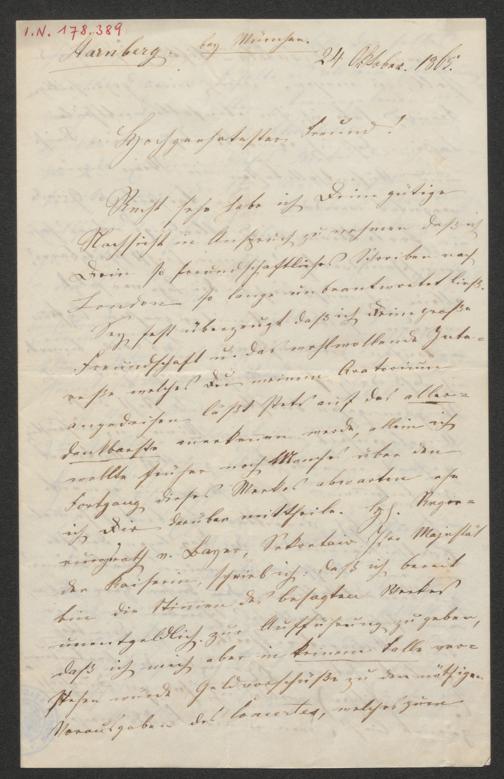 I.N. 178.389
Starnberg. bey München.
24 Oktober. 1865.
Hochgeehrtester Freund!
Recht sehr habe ich Deine gütige
Nachsicht in Anspruch zu nehmen daß ich
Dein so freundschaftliches Schreiben nach
London so lange unbeantwortet ließ.
Sey fest überzeugt daß ich Deine große
Freundschaft u. das wohlwollende Inte-
resse welches Du meinem Oratorium
angedeihen läßt stets auf das aller-
dankbarste anerkennen werde, allein ich
wollte früher noch Manches über den
Fortgang dieses Werkes abwarten ehe
ich Dir darüber mittheile. H. Regie-
rungsrath v. Bayer, Sekretair Ihrer Majestät
der Kaiserin, schrieb ich, daß ich bereit
bin die Stimmen des besagten Werkes
unentgeldlich zur Aufführung zu geben,
daß ich mich aber in keinem Falle ver-
stehen würde Geldvorschüße zu den nöthigen
Vorausgaben des Concertes, welches zum